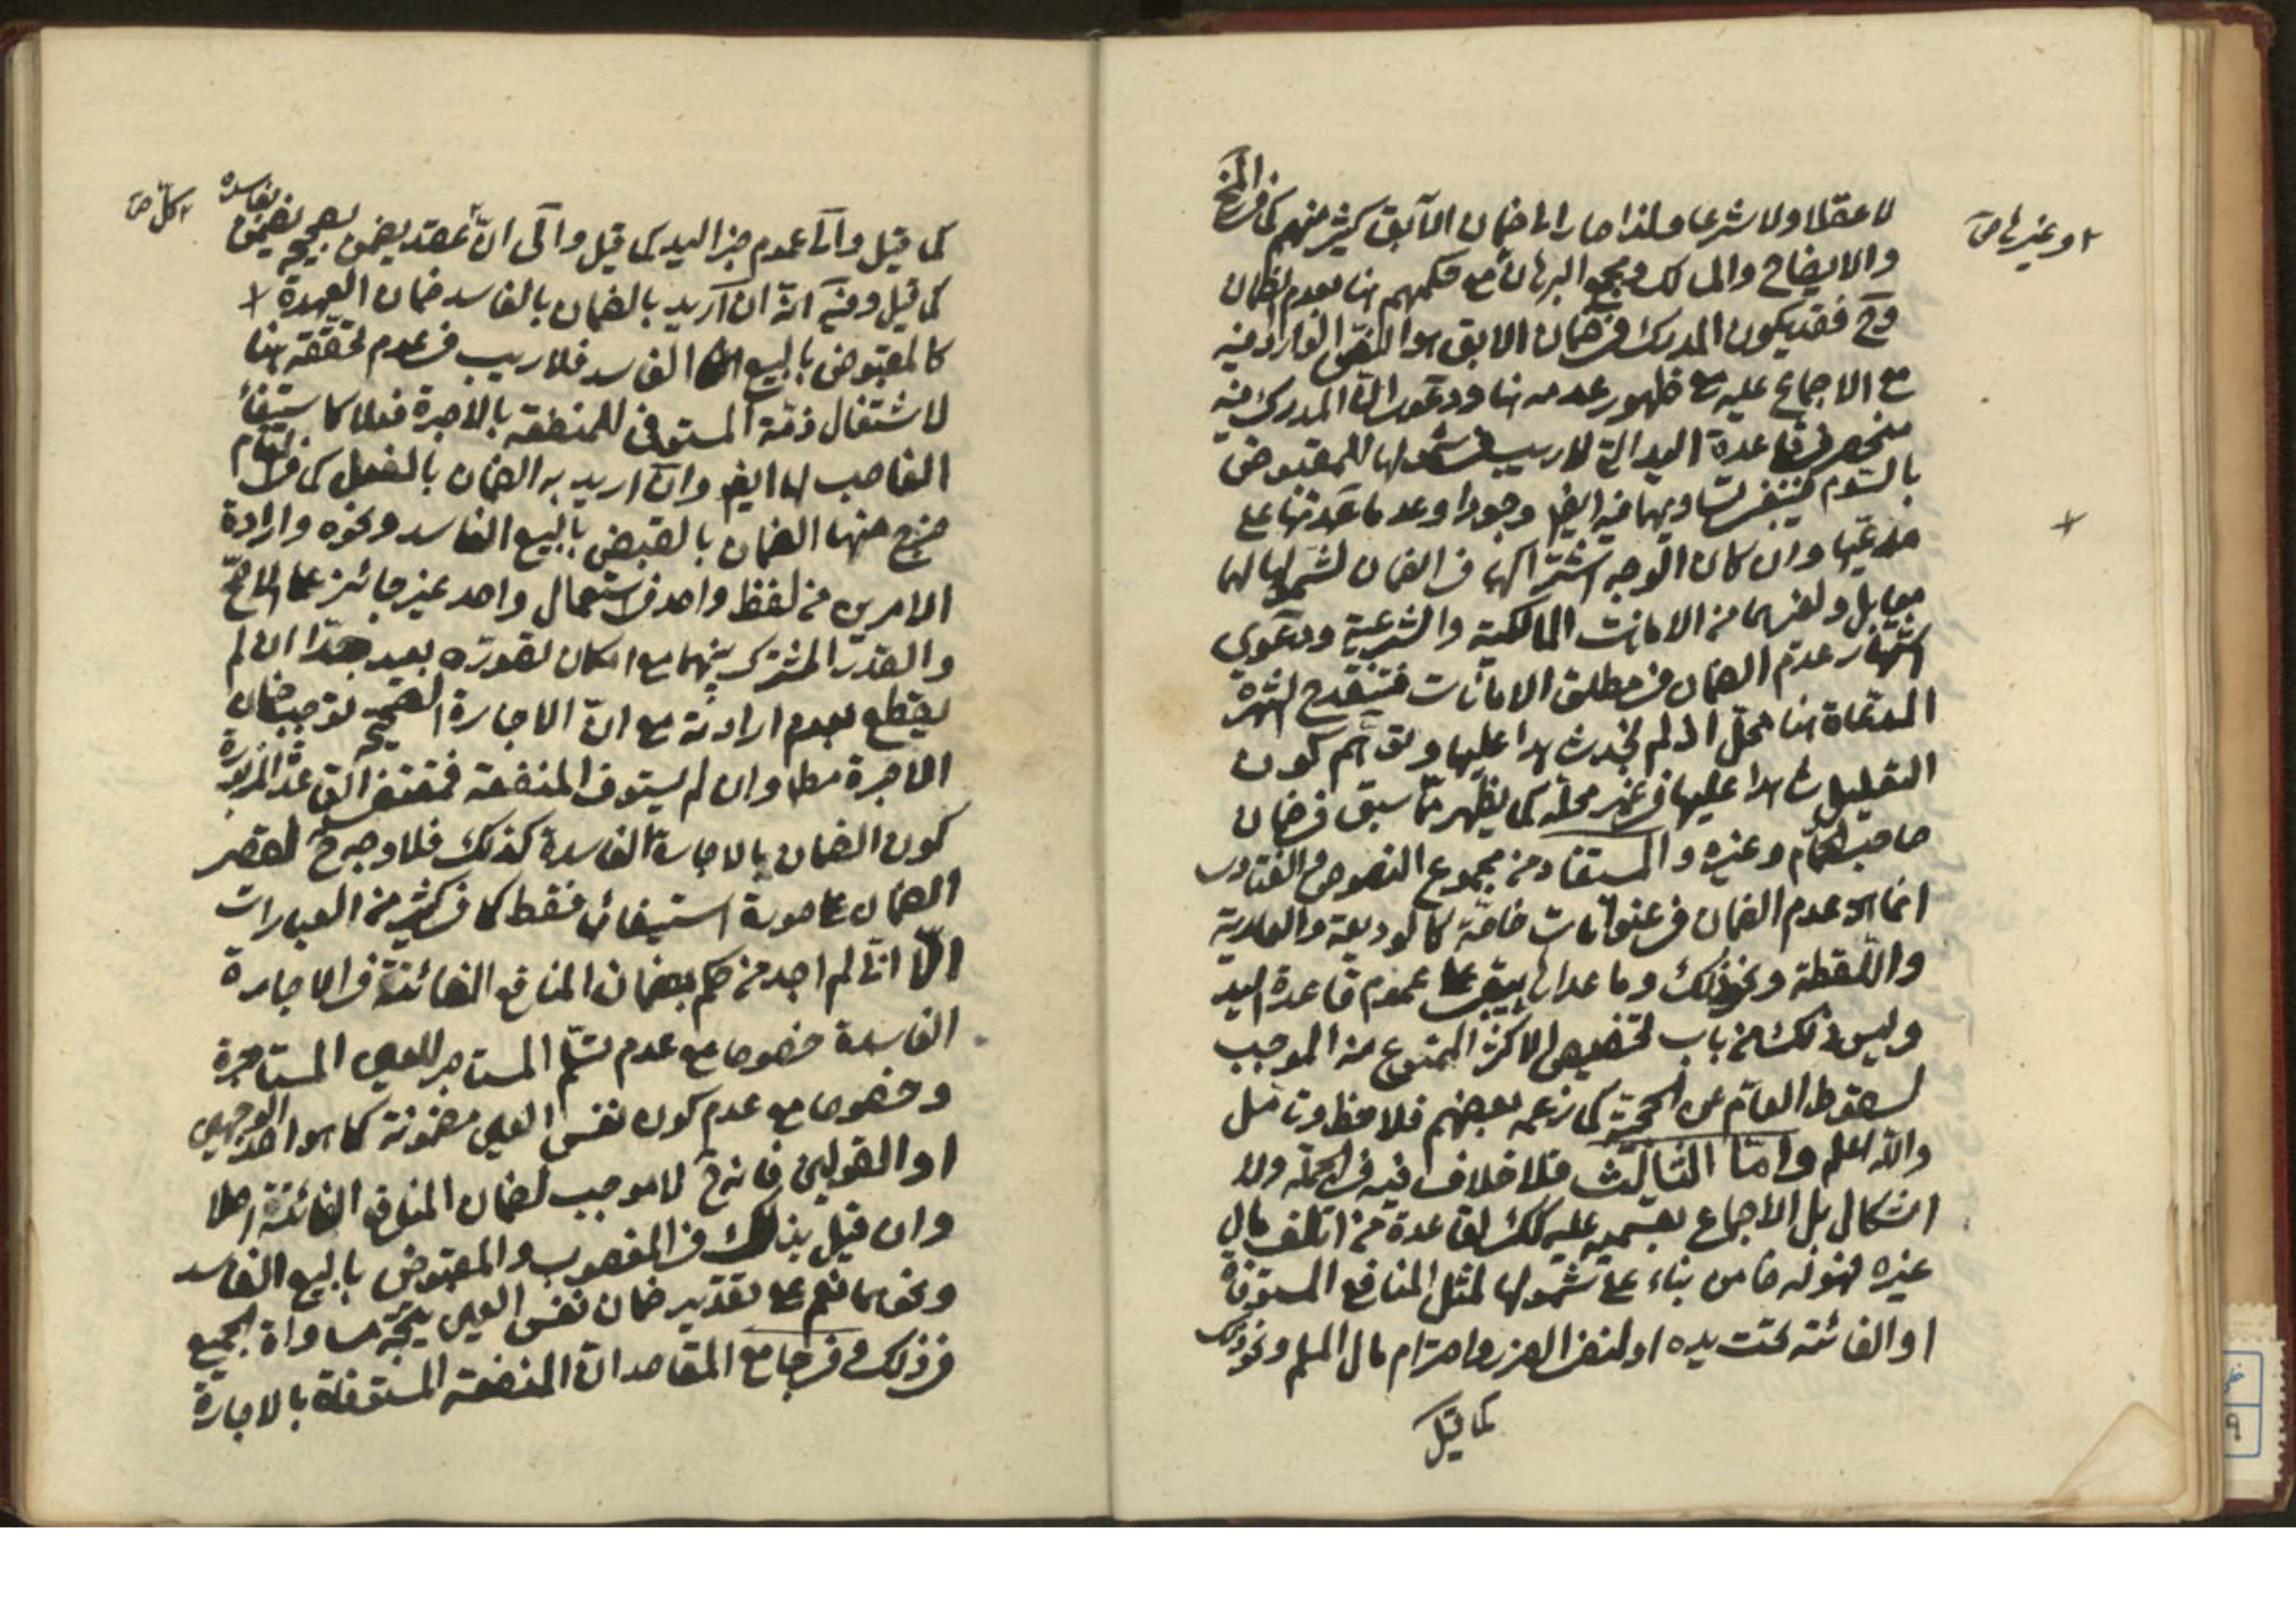 لا عقلا ولا شرعا ولذا صار الى ضمان الآبق كثير منهم كما في
والايضاح والمسالك ومجمع البرهان مع حكمهم هنا بعدم الضمان
وح فقد يكون المدرك في ضمان الابق هو النص الوارد فيه
مع الاجماع عليه مع ظهور عدمه هنا ودعوى ان المدرك فيه
منحصر في قاعدة اليد التي لا ريب في شمولها للمقبوض
بالسوم فيقتضي تساويهما فيه ايض وجودا وعدما عهدتها على
مدعيها وان كان الوجه اشتراكهما في الضمان لشمولها لهما
بل ولغيرهما من الامانات المالكية والشرعية ودعوى
اشتهار عدم الضمان في مطلق الامانات فتنقدح الشهرة
المدعاة هنا محل اذ لم نجد شاهدا عليها وتوهم كون
التعليل شاهدا عليها في غير محله كما يظهر مما سبق في ضمان
صاحب الحمام وغيره والمستفاد من مجموع النصوص والفتاوى
انما هو عدم الضمان في عنوانات خاصة كالوديعة والعارية
واللقطة ونحو ذلك وما عداها يبقى على عموم قاعدة اليد
وليس ذلك من باب تخصيص الاكثر الممنوع منه الموجب
لسقوط العام عن الحجية كما زعمه بعضهم فلاحظ وتأمل
والله اعلم واما الثالث فلا خلاف فيه في الجملة ولا
اشكال بل الاجماع بقسميه عليه كك لقاعدة من اتلف مال
غيره فهو له ضامن بناء على شمولها لمثل المنافع المستوفاة
او الفائتة تحت يده او لنفي الضرر واحترام مال المسلم ونحو ذلك
كما قيل
او غيرها ص
كما قيل واما عموم خبر اليد كما قيل واما لان كل عقد يضمن بصحيحه يضمن بفاسده
كما قيل وفيه انه ان اريد بالضمان بالفاسد ضمان العهدة
كالمقبوض بالبيع الفاسد فلا ريب في عدم تحققه هنا
لاشتغال ذمة المستوفي للمنفعة بالاجرة فعلا كاستيفاء
الغاصب لها ايض وان اريد به الضمان بالفعل كما في المقام
خرج منها الضمان بالقبض بالبيع الفاسد ونحوه وارادة
الامرين من لفظ واحد في استعمال واحد غير جائز على الاصح
والقدر المشترك بينهما مع امكان تصوره بعيد جدا ان لم
يقطع بعدم ارادته مع ان الاجارة الصحيحة توجب ضمان
الاجرة مط وان لم يستوف المنفعة فمقتضى القاعدة المزبورة
كون الضمان بالاجارة الفاسدة كذلك فلا وجه ح لقصر
الضمان على صورة استيفائها فقط كما في كثير من العبارات
الا اني لم اجد من حكم بضمان المنافع الفائتة في الاجارة
الفاسدة خصوصا مع عدم تسلم المستاجر للعين المستاجرة
وخصوصا مع عدم كون نفس العين مضمونة كما هو احد الوجهين
او القولين فانه ح لا موجب لضمان المنافع الفائتة اصلا
وان قيل بذلك في المغصوب والمقبوض بالبيع الفاسد
ونحوهما نعم على تقدير ضمان نفس العين يتجه مساواة الجميع
في ذلك وفي جامع المقاصد ان المنفعة المستوفاة بالاجارة
كل ص